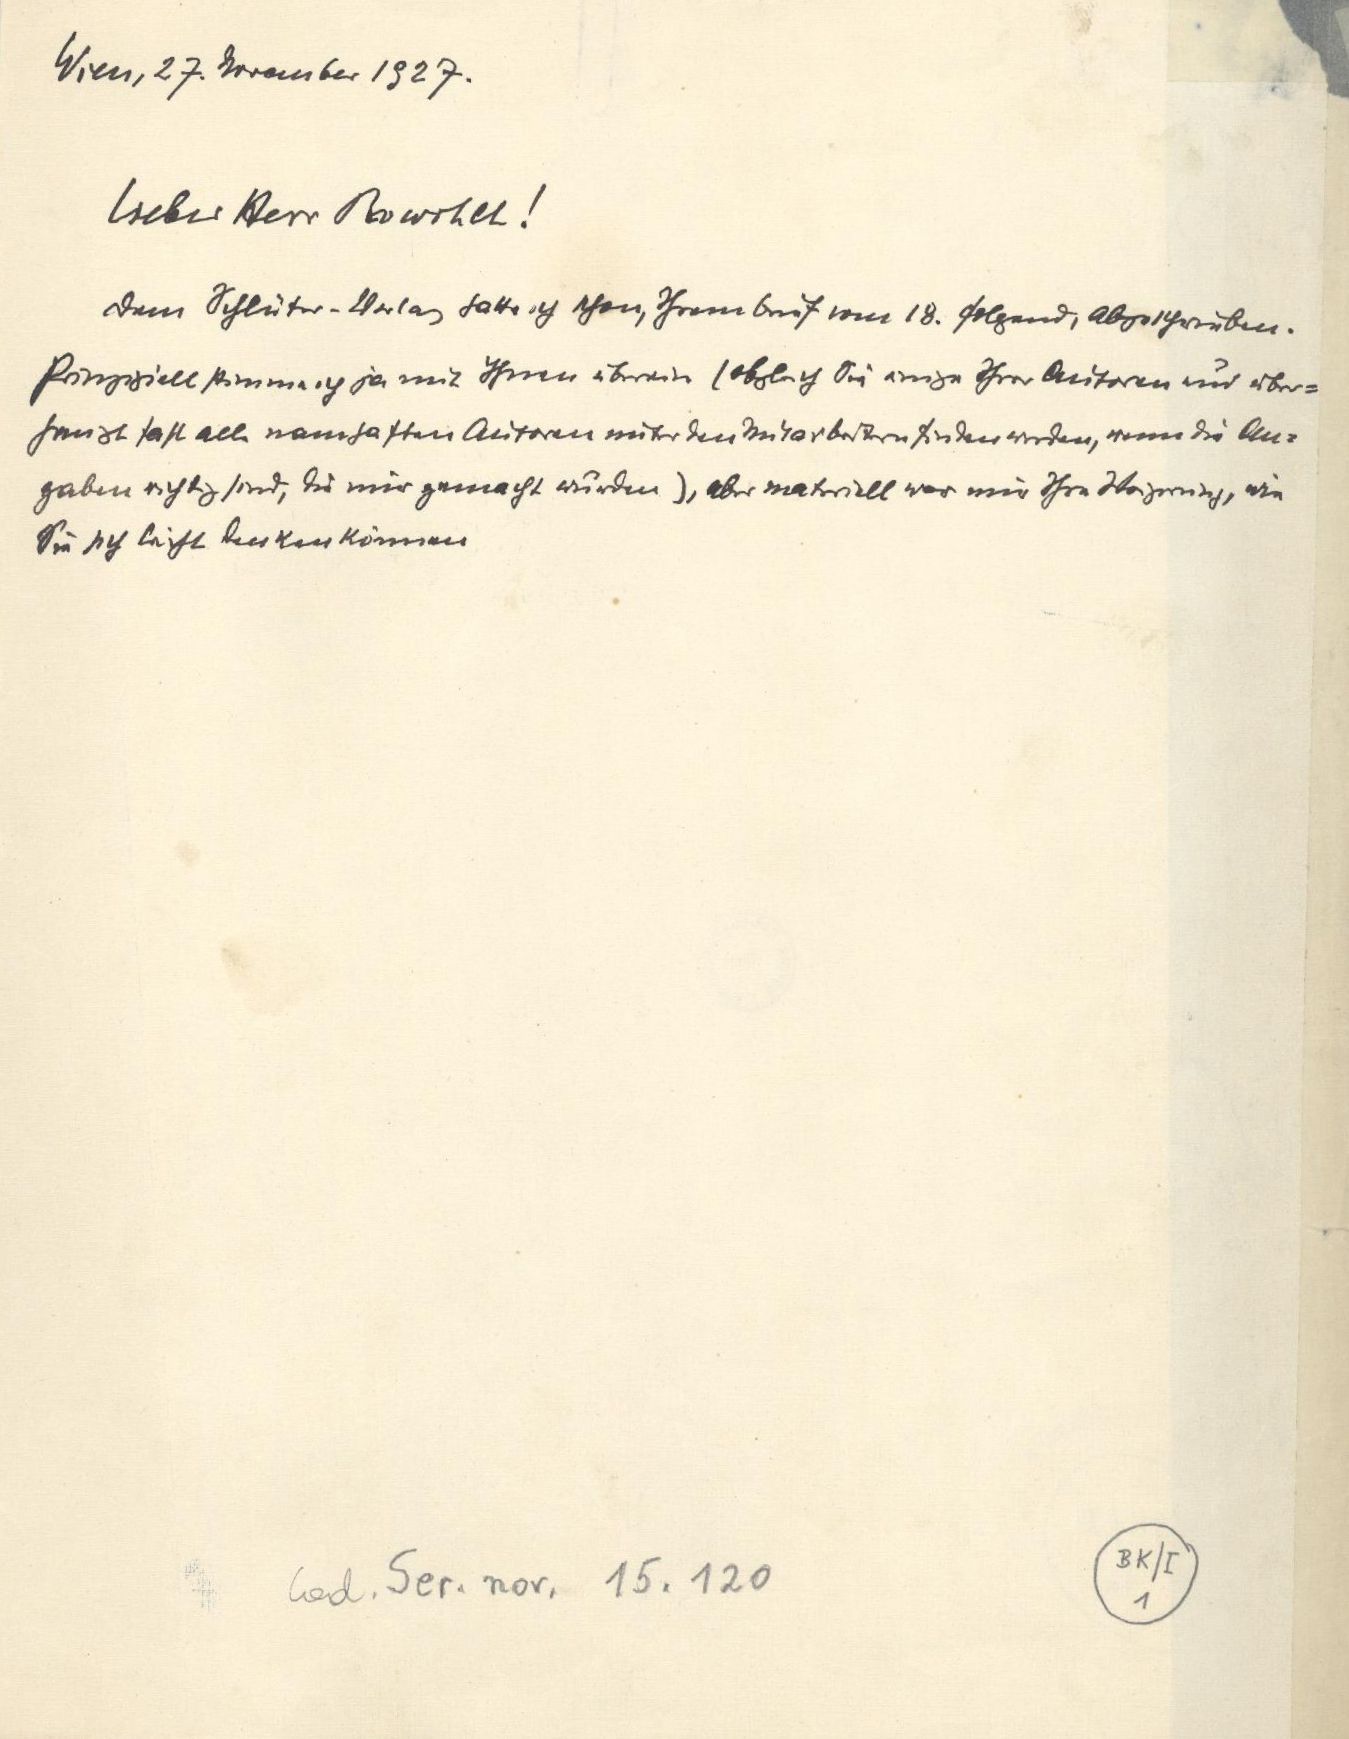 Wien, 27. November 1927.
Lieber Herr Rowohlt!
Dem Schlüter-Verlag hatte ich schon, Ihrem Brief vom 18. folgend, abgeschrieben.
Prinzipiell stimme ich ja mit Ihnen überein (obgleich Sie einige Ihrer Autoren und über=
haupt fast alle namhaften Autoren unter den Mitarbeitern finden werden, wenn die An=
gaben richtig sind, die mir gemacht wurden), aber materiell war mir Ihre Weigerung, wie
Sie sich leicht denken können
Cod. Ser. nov. 15.120
BK/I
1